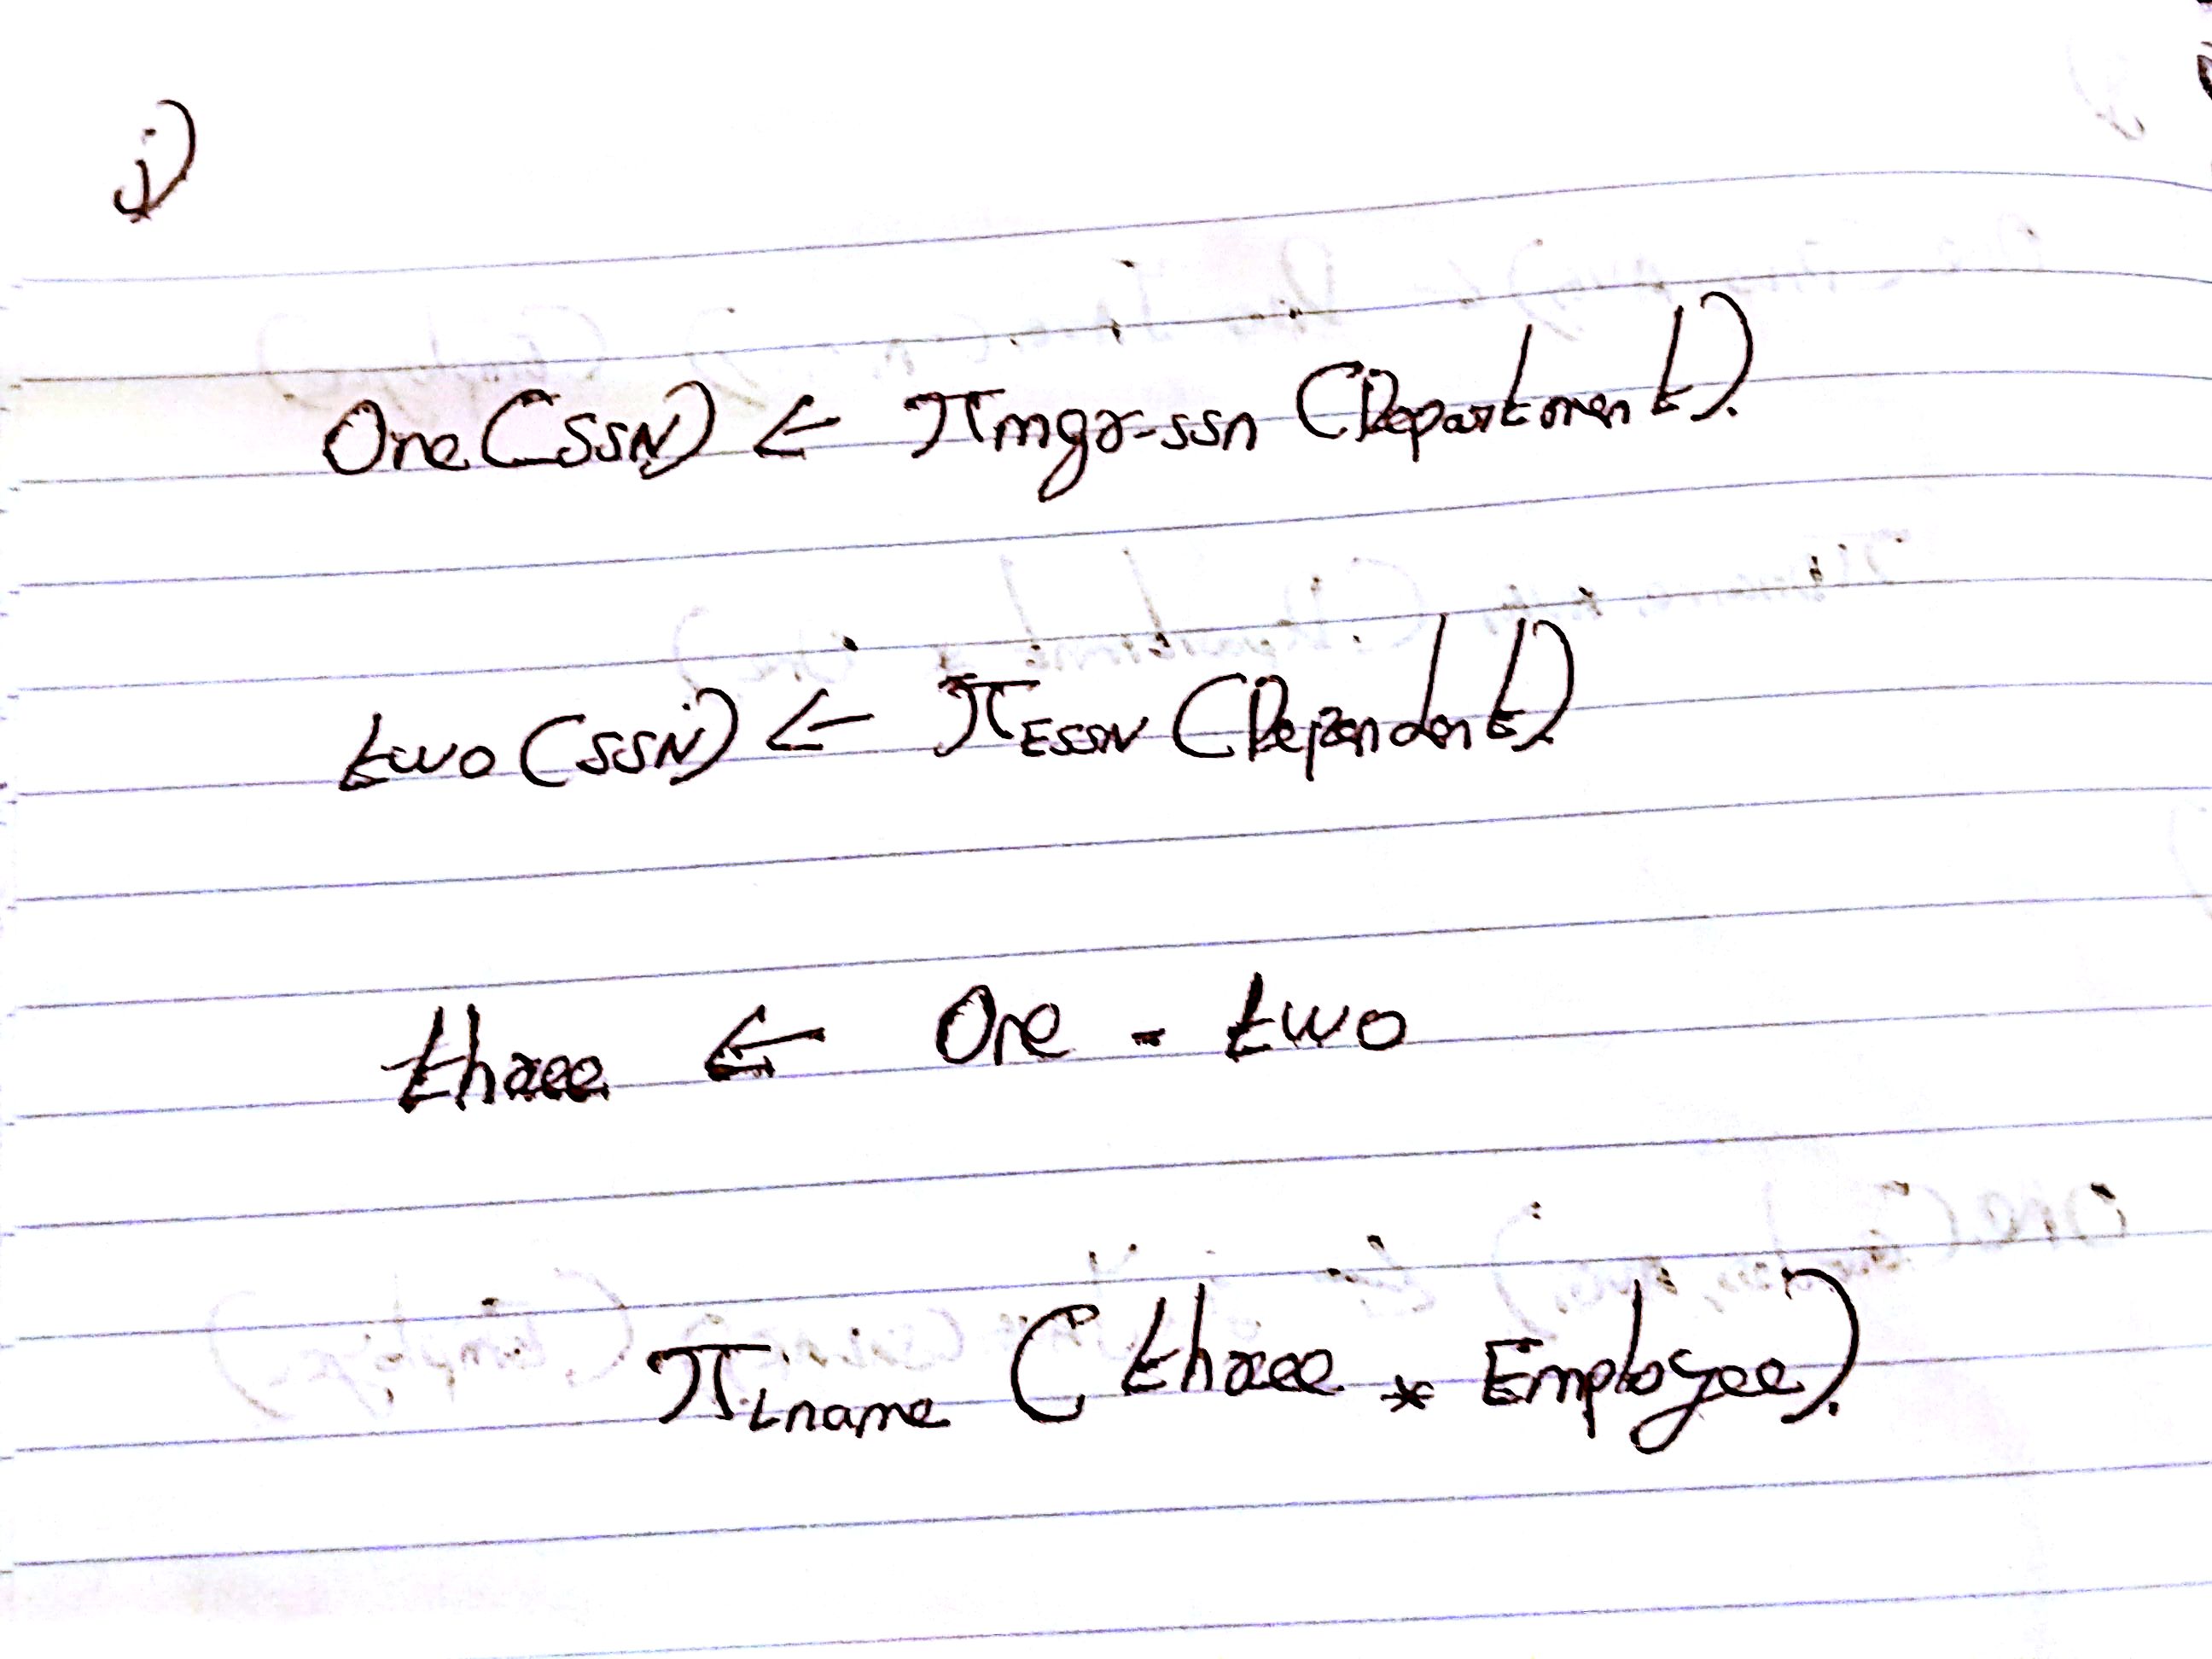 j)
One (SSN) ← π mgr-ssn (Department).
two (SSN) ← π ESSN (Dependent)
three ← One - two
π Lname (three * Employee).